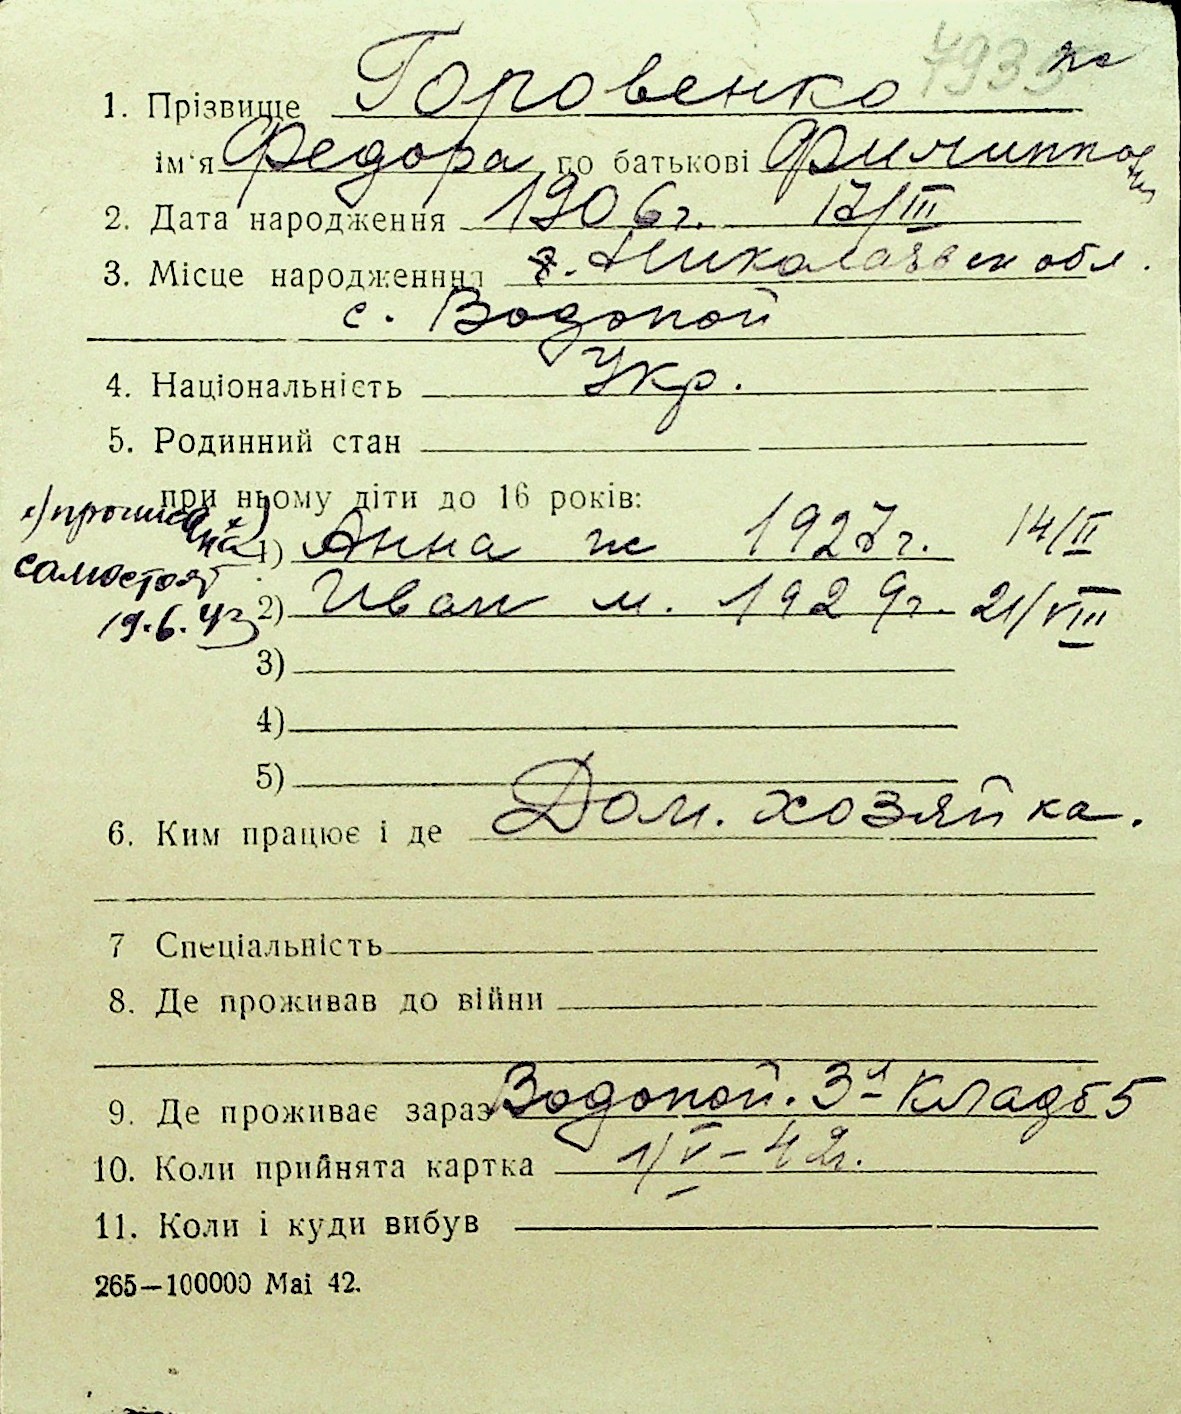 1. Прізвище Горовенко 4935 ж
ім'я Федора по батькові Филиппов
2. Дата народження 1906г. 17/III
3. Місце народженння г. Николаевск обл.
с. Водопой
4. Національність Укр.
5. Родинний стан
при ньому діти до 16 років:
х) прописана
самостоят
19.6.43
1) Анна ж 1927г. 14/II
2) Иван м. 1929г. 21/VIII
3)
4)
5)
6. Ким працює і де Дом. хозяйка.
7 Спеціальність
8. Де проживав до війни
9. Де проживає зараз Водопой. 3я Кладб 5
10. Коли прийнята картка 1/V-42г.
11. Коли і куди вибув
265—100000 Mai 42.